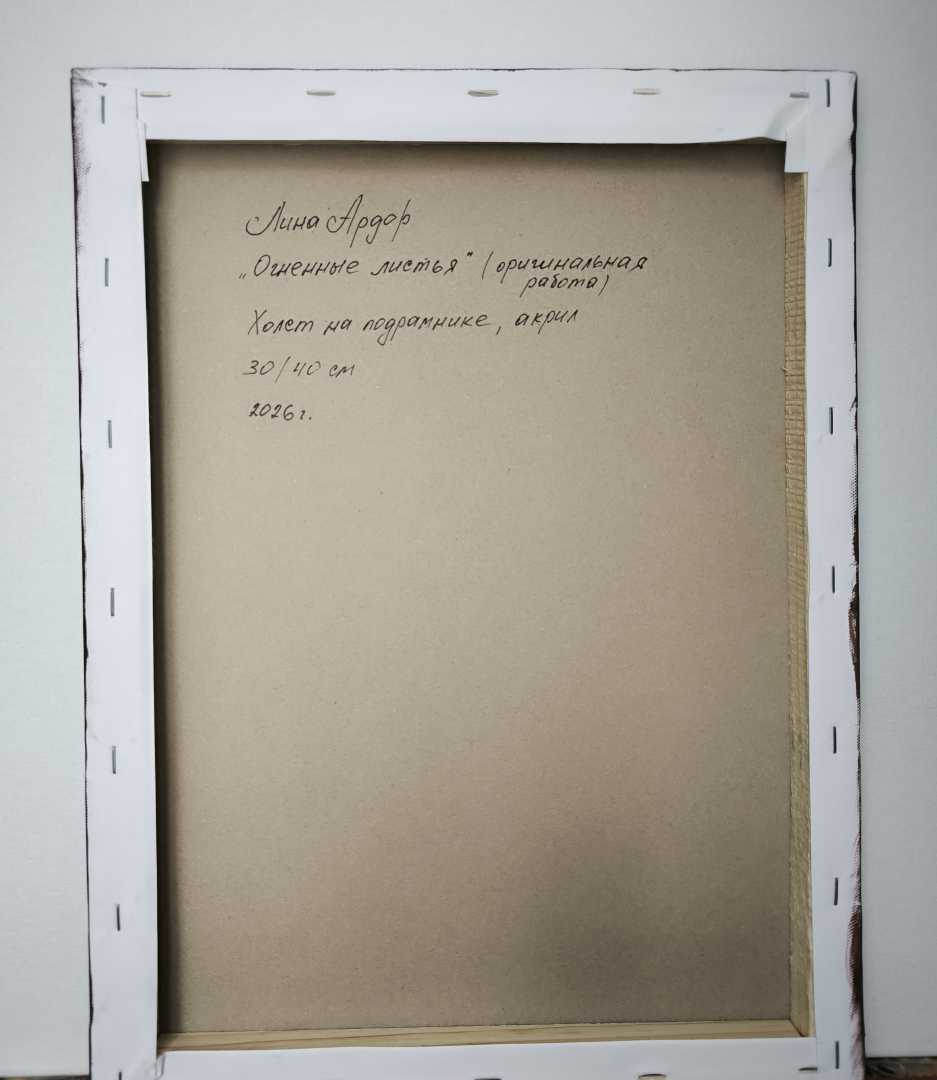 Лина Ардор
„Огненные листья" (оригинальная
работа)
Холст на подрамнике, акрил
30/40 см
2026 г.